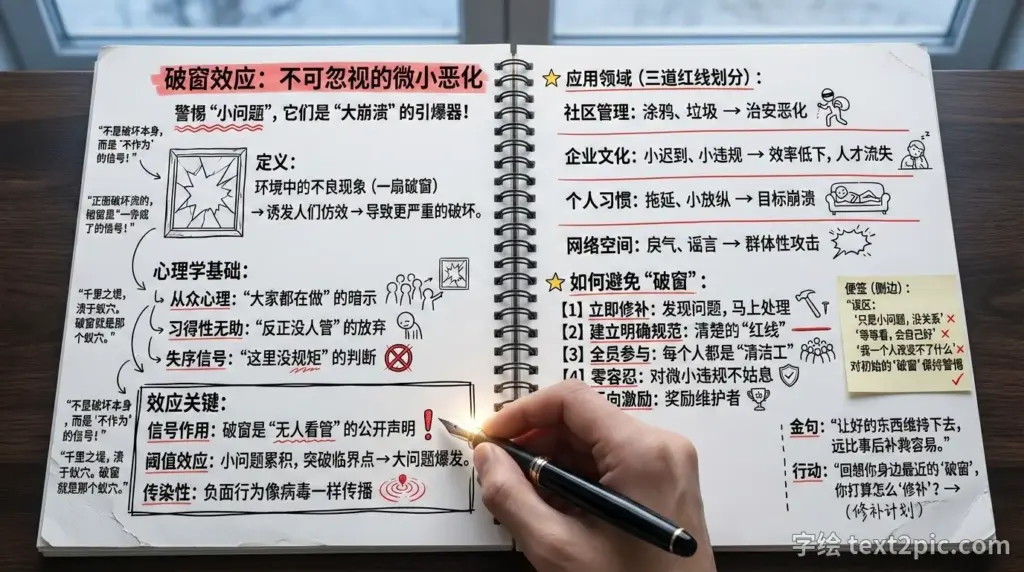 破窗效应：不可忽视的微小恶化
警惕“小问题”，它们是“大崩溃”的引爆器！
“不是破坏本身，
而是‘不作为’
的信号！”
定义：
环境中的不良现象（一扇破窗）
→诱发人们仿效→导致更严重的破坏。
心理学基础：
从众心理：“大家都在做”的暗示
习得性无助：“反正没人管”的放弃
失序信号：“这里没规矩”的判断
“千里之堤，
溃于蚁穴。
破窗就是那
个蚁穴。”
效应关键：
信号作用：破窗是“无人看管”的公开声明
阈值效应：小问题累积，突破临界点→大问题爆发。
传染性：负面行为像病毒一样传播
“不是破坏本身
，而是‘不作为’
的信号！”
“千里之堤，溃
于蚁穴。破窗
就是那个蚁穴。”
应用领域（三道红线划分）：
社区管理：涂鸦、垃圾 → 治安恶化
企业文化：小迟到、小违规 → 效率低下，人才流失
个人习惯：拖延、小放纵 → 目标崩溃
网络空间：戾气、谣言 → 群体性攻击
如何避免“破窗”：
【1】立即修补：发现问题，马上处理
【2】建立明确规范：清楚的“红线”
【3】全员参与：每个人都是“清洁工”
【4】零容忍：对微小违规不姑息
向激励：奖励维护者
便签（侧边）：
“误区：
‘只是小问题，没关系’×
‘等等看，会自己好’×
‘我一个人改变不了什么’×
对初始的‘破窗’保持警惕
金句：“让好的东西维持下去，
远比事后补救容易。”
行动：“回想你身边最近的‘破窗’，
你打算怎么‘修补’？→
（修补计划）
字绘 text2pic.com